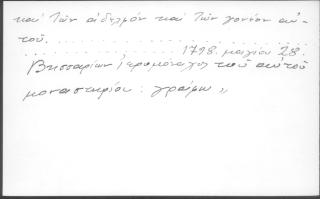 καί τῶν ἀδελφῶν καί τῶν γονέον αὐ-
τοῦ. . . . . . . . . . . . . . . . . . . . . . . .
. . . . . . . . . . . . . . . . 1798. μαγίου 28.
Βησσαρίων ἱερομόναχος τοῦ αὐτοῦ
μοναστηρίου: γράφω „